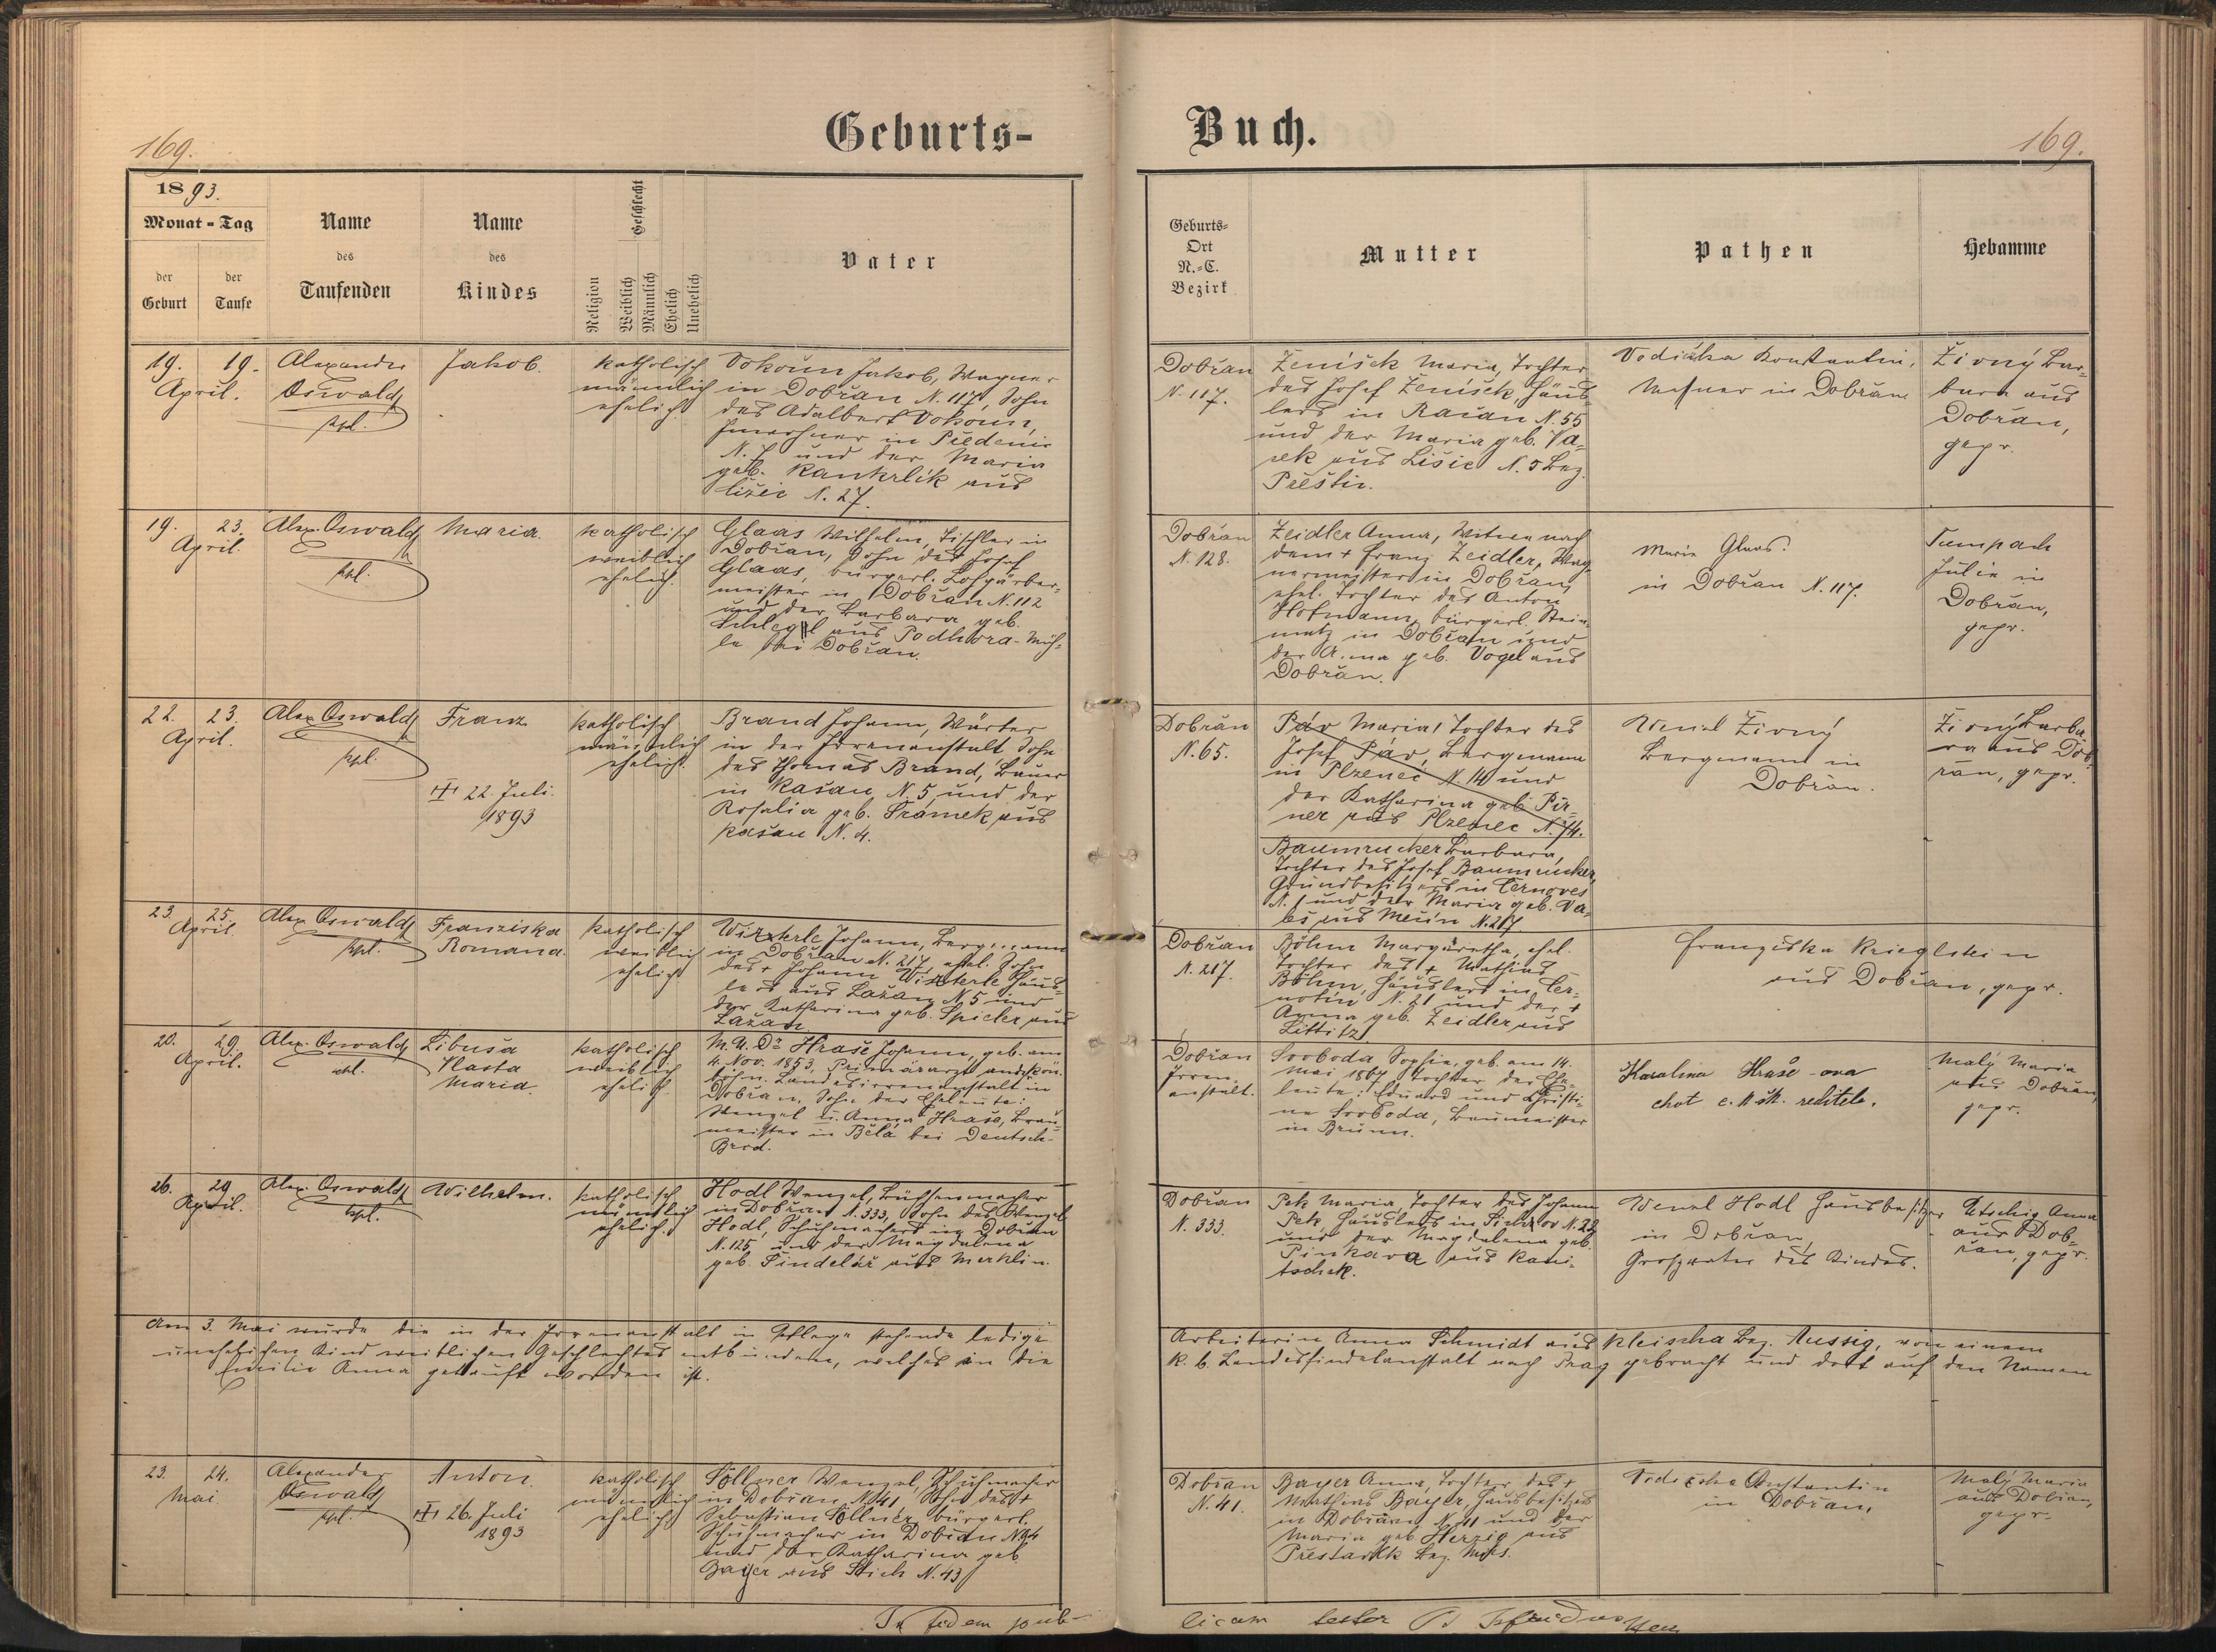 169.
Geburts-
Buch.
169.
1893.
Monat-Tag
der Geburt
der Taufe
Name des Taufenden
Name des Kindes
Religion
Geschlecht
Weiblich
Männlich
Ehelich
Unehelich
Vater
Geburts-Ort N.-C. Bezirk
Mutter
Pathen
Hebamme
19. 19.
April.
Alexander
Oswald
kpl.
Jakob.
katholisch
männlich
ehelich
Vokoun Jakob, Wagner
in Dobřan N. 117, Sohn
des Adalbert Vokoun,
Inwohner in Předenic
N. 7 und der Maria
geb. Kankrlík aus
Dobřan
N. 117.
Ženíšek Maria, Tochter
des Josef Ženíšek, Häus-
lers in Račan N. 55
und der Maria geb. Va-
aus Lišic N. 5 Bez.
Přestic.
Vodička Konstantin,
Meßner in Dobřan
Živný Bar-
bara aus
Dobřan,
gepr.
19. 23.
April.
Alex. Oswald
kpl.
Maria.
katholisch
weiblich
ehelich.
Glaas Wilhelm, Tischler in
Dobřan, Sohn des Josef
Glaas, bürgerl. Lohgärber-
meister in Dobřan N. 112
und der Barbara geb.
Schlegl aus Podhora-Müh-
le bei Dobřan.
Dobřan
N. 128.
Zeidler Anna, Witwe nach
dem + Franz Zeidler, Wag-
nermeister in Dobřan,
ehel. Tochter des Anton
Hofmann, bürgerl. Stein-
metz in Dobřan und
der Anna geb. Vogel aus
Dobřan.
Marie Glaas.
in Dobřan N. 117.
Tumpach
Julie in
Dobřan,
gepr.
22. 23.
April.
Alex. Oswald
kpl.
Franz
22. Juli.
1893
katholisch
männlich
ehelich.
Brand Johann, Wärter
in der Irrenanstalt, Sohn
des Thomas Brand, Bauer
in Kašan N. 5 und der
Rosalia geb. Šrámek aus
Kašan N. 4.
Dobřan
N. 65.
Páv Maria, Tochter des
Josef Páv, Bergmann
in Plzenec N. 14 und
der Katharina geb. Pir-
ner aus Plzenec N. 74.
Baumrucker Barbara,
Tochter des Josef Baumrucker,
Grundbesitzers in Černoves
N. 1 und der Maria geb. Va-
aus N. 217
Wenzl Živný
Bergmann in
Dobřan.
Živný Barba-
ra aus Dob-
řan, gepr.
23. 25.
April.
Alex. Oswald
kpl.
Franziska
Romana.
katholisch
weiblich
ehelich.
Wirterle Johann, Bergmann
in Dobřan N. 217, ehel. Sohn
des + Johann Wirterle Häus-
lers aus Lažan N. 5 und
der Katharina geb. Spieler aus
Lažan.
Dobřan
N. 217.
Böhm Margaretha, ehel.
Tochter des + Mathias
Böhm, Häuslers in Čer-
notín N. 21 und der +
Anna geb. Zeidler aus
Littitz.
Franziska Krieglstein
aus Dobřan, gepr.
20. 29.
April.
Alex. Oswald
kpl.
Libuša
Vlasta
Maria.
katholisch
weiblich
ehelich.
M.U.Dr. Hraše Johann, geb. am
4. Nov. 1853, Primärarzt an der kön.
böhm. Landesirrenanstalt in
Dobřan, Sohn der Eheleute:
Wenzel u. Anna Hraše, Brau-
meister in Bělá bei Deutsch-
Brod.
Dobřan
Irren-
anstalt.
Svoboda Sophie, geb. am 14.
Mai 1867, Tochter der Ehe-
leute: Eduard und Christi-
ne Svoboda, Baumeister
in Brünn.
Karolina Hraše-ova
choť c. k. ředitele.
Malý Maria
aus Dobřan,
gepr.
26. 29.
April.
Alex. Oswald
kpl.
Wilhelm.
katholisch
männlich
ehelich.
Hodl Wenzel, Büchsenmacher
in Dobřan N. 333, Sohn des Wenzel
Hodl, Schuhmachers in Dobřan
N. 125, und der Magdalena
geb. Šindelář aus Merklin.
Dobřan
N. 333.
Pek Maria Tochter des Johann
Pek, Häuslers in N. 28
und der Magdalena geb.
Pinkava aus Kani-
tschek.
Wenzl Hodl Hausbesitzer
in Dobřan,
Großvater des Kindes.
Utschig Anna
aus Dob-
řan, gepr.
Am 3. Mai wurde die in der Irrenanstalt in Pflege stehende ledige Arbeiterin Anna Schmidt aus Kleischa Bez. Aussig, von einem
unehelichen Kind weiblichen Geschlechtes entbunden, welches in die k. b. Landesfindelanstalt nach Prag gebracht und dort auf den Namen
Emilie Anna getauft worden ist.
23. 24.
Mai
Alexander
Oswald
kpl.
Anton.
26. Juli
1893
katholisch
männlich
ehelich
Söllner Wenzel, Schuhmacher
in Dobřan N. 41, Sohn des +
Sebastian Söllner, bürgerl.
Schuhmacher in Dobřan N. 94
und der Katharina geb.
Bayer aus Stich N. 43
Dobřan
N. 41.
Bayer Anna, Tochter des +
Mathias Bayer, Hausbesitzers
in Dobřan N. 41 und der
Maria geb. Herzig aus
Přestavlk Bez. Mies.
Vodička Constantin
in Dobřan,
Malý Maria
aus Dobřan,
gepr.
In fidem pub-
licam testor P.